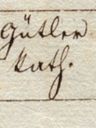 Gütler
kath.